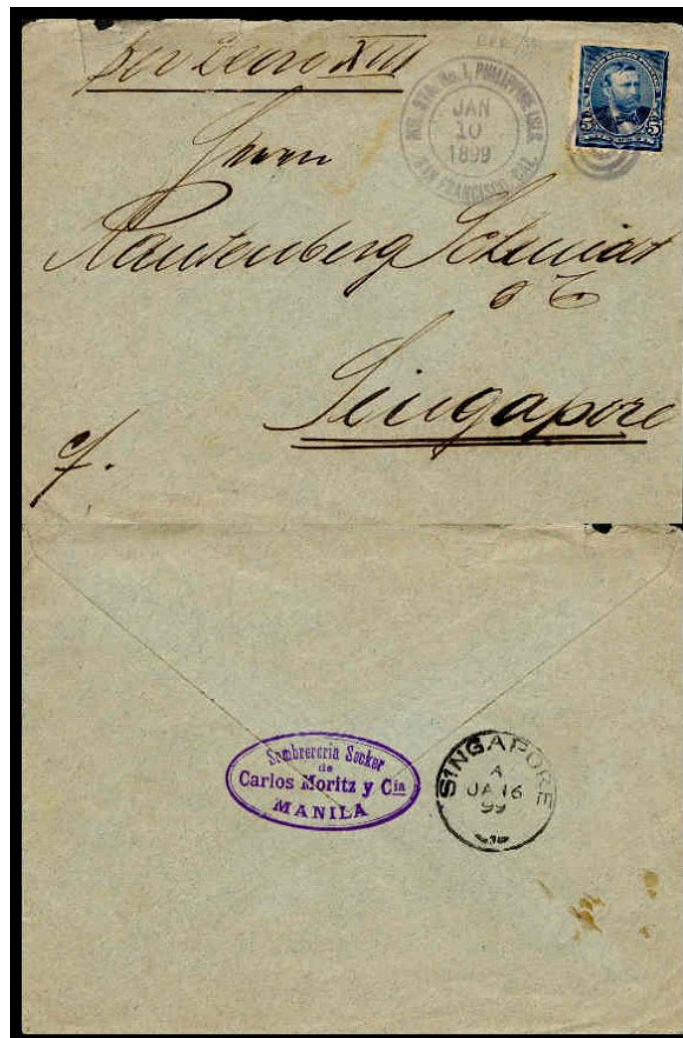 per Leon XIII
MIL. STA. No. 1, PHILIPPINE ISLS.
JAN
10
1899
SAN FRANCISCO, CAL.
5 5
Herrn
Rautenberg Schmidt
& Co
Singapore
Sombrereria Secker
de
Carlos Moritz y Cia
MANILA
SINGAPORE
A
JA 16
99